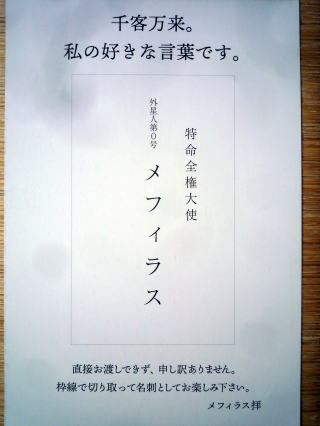 千客万来。
私の好きな言葉です。
特命全権大使
外星人第０号
メフィラス
直接お渡しできず、申し訳ありません。
枠線で切り取って名刺としてお楽しみ下さい。
メフィラス拝